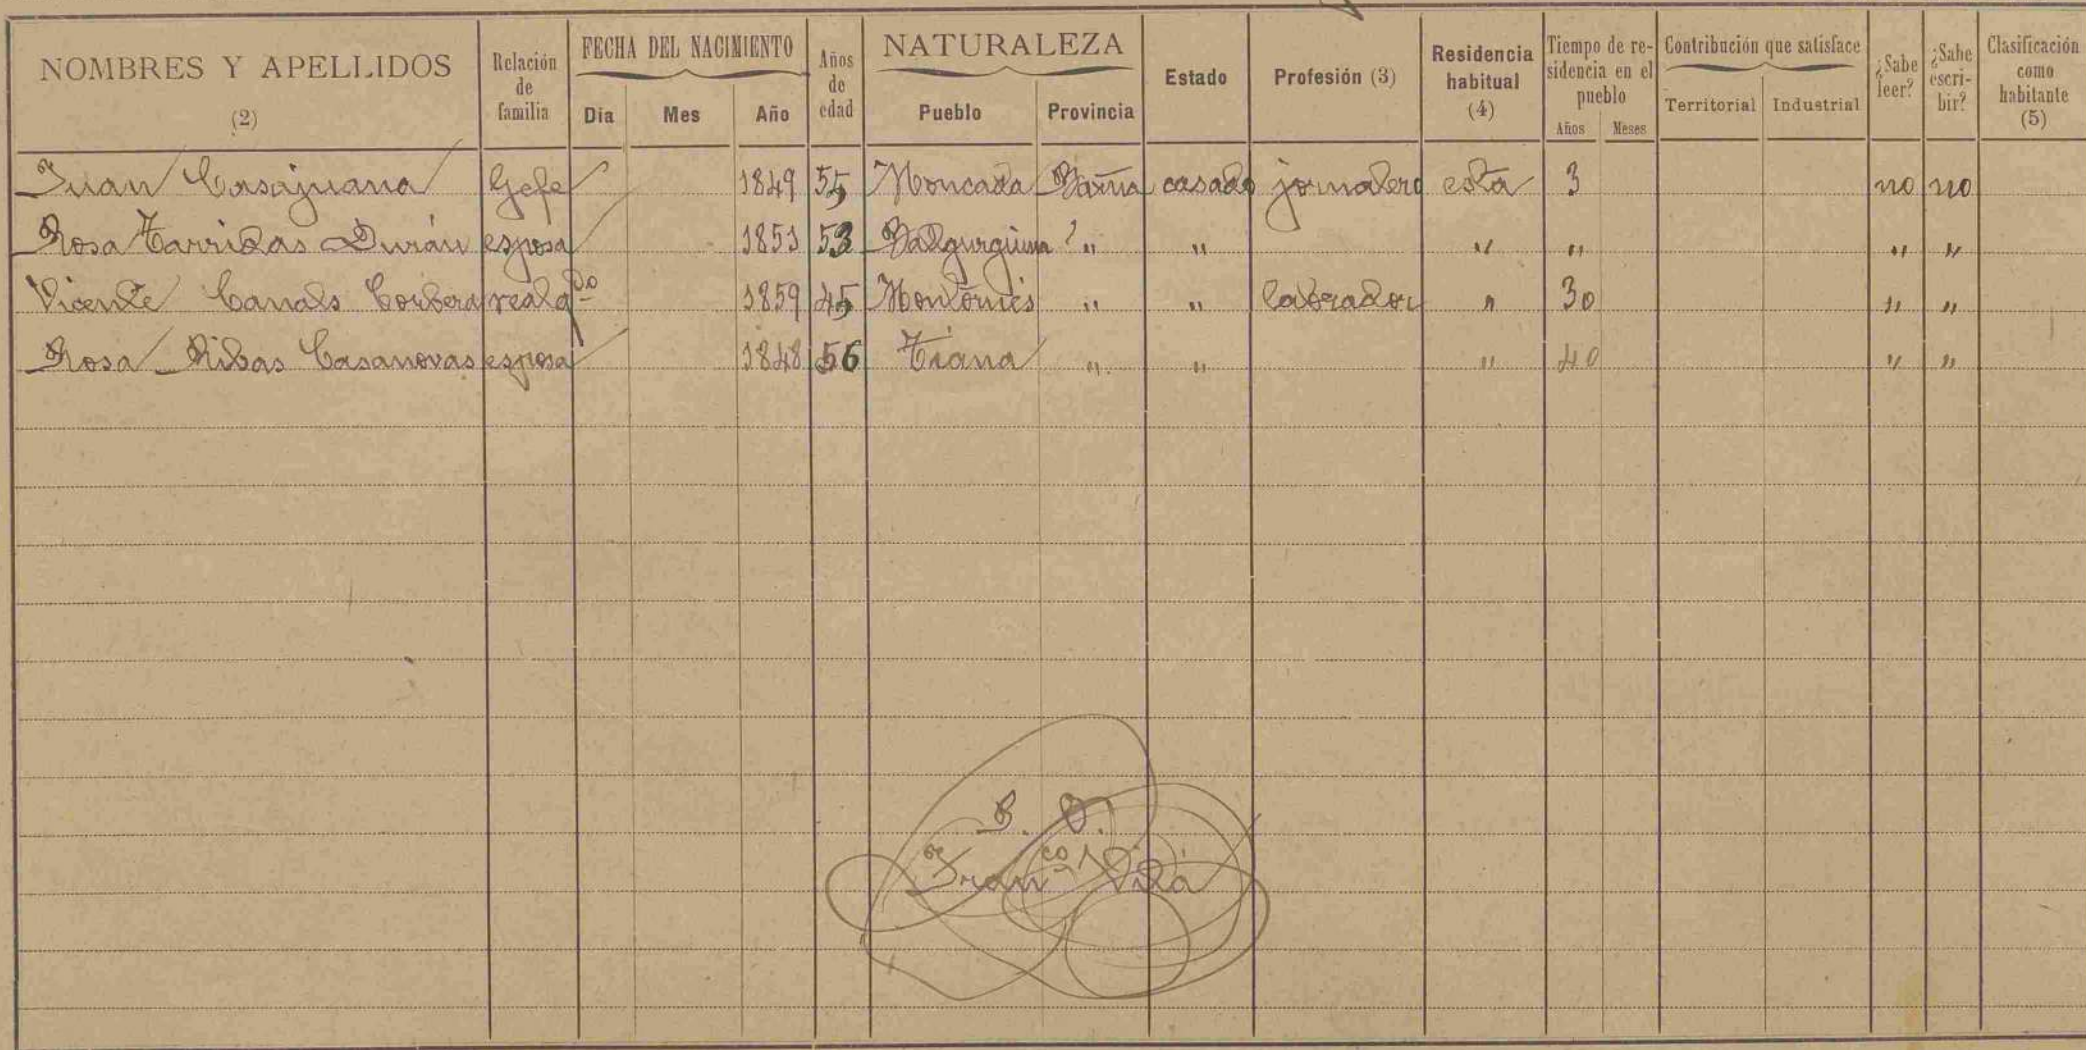 NOMBRES Y APELLIDOS (2) Relación de familia FECHA DEL NACIMIENTO Día Mes Año Años de edad NATURALEZA Pueblo Provincia Estado Profesión (3) Residencia habitual (4) Tiempo de residencia en el pueblo Años Meses Contribución que satisface Territorial Industrial ¿Sabe leer? ¿Sabe escribir? Clasificación como habitante (5)
Juan Casajuana Gefe 1849 55 Moncada Barna casado jornalero esta 3 no no
Rosa Tarridas Durán esposa 1851 53 " " " " " "
Vicente Canals Corbera realqdo 1859 45 Montornés " " labrador " 30 " "
Rosa Ribas Casanovas esposa 1848 56 Tiana " " " 40 " "
Franco Vilá